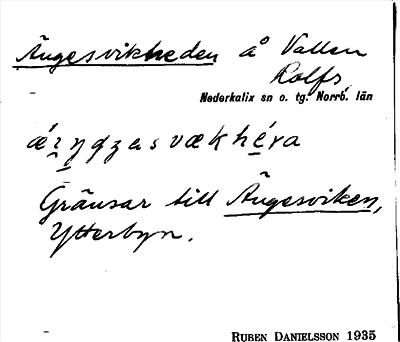 Ängesvikheden å Vallen
Rolfs
Nederkalix sn o. tg. Norrb. län
Gränsar till Ängesviken,
Ytterbyn.
RUBEN DANIELSSON 1935